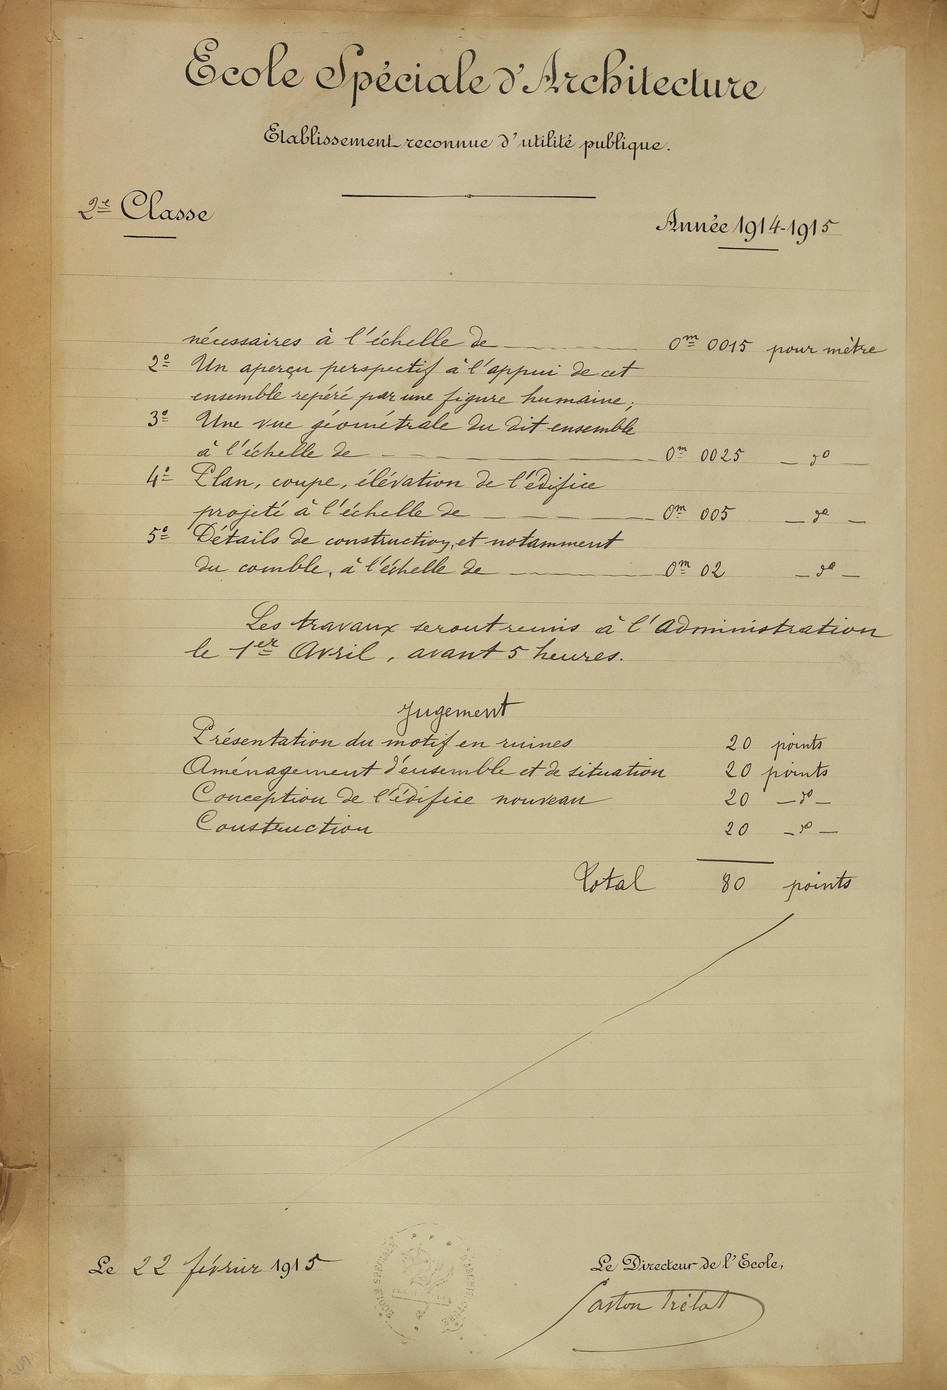 Ecole Spéciale d'Architecture
Etablissement reconnue d'utilité publique.
2e Classe
Année 1914-1915
nécessaires à l'échelle de 0m 0015 pour mètre
2o Un aperçu perspectif à l'appui de cet
ensemble repéré par une figure humaine;
3o Une vue géométrale du dit ensemble
à l'échelle de 0m 0025 — do —
4o Plan, coupe, élévation de l'édifice
projeté à l'échelle de 0m 005 — do —
5o Détails de construction, et notamment
du comble, à l'échelle de 0m 02 — do —
Les travaux seront remis à l'Administration
le 1er Avril, avant 5 heures.
Jugement
Présentation du motif en ruines 20 points
Aménagement d'ensemble et de situation 20 points
Conception de l'édifice nouveau 20 — do —
Construction 20 — do —
Total 80 points
Le 22 février 1915
Le Directeur de l'Ecole,
Gaston Trélat